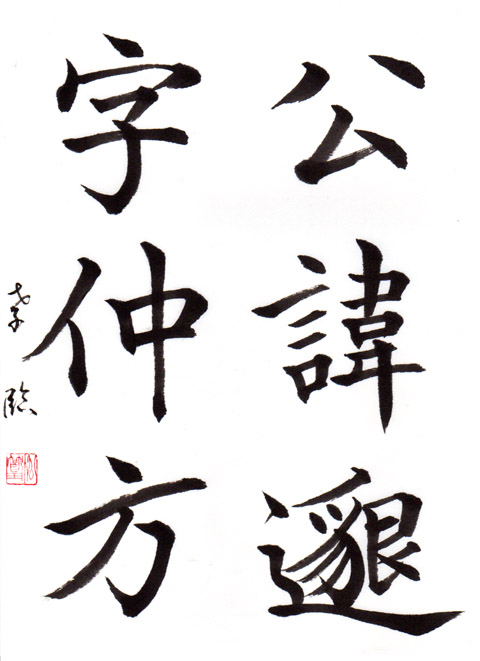 公諱邈
字仲方
臨